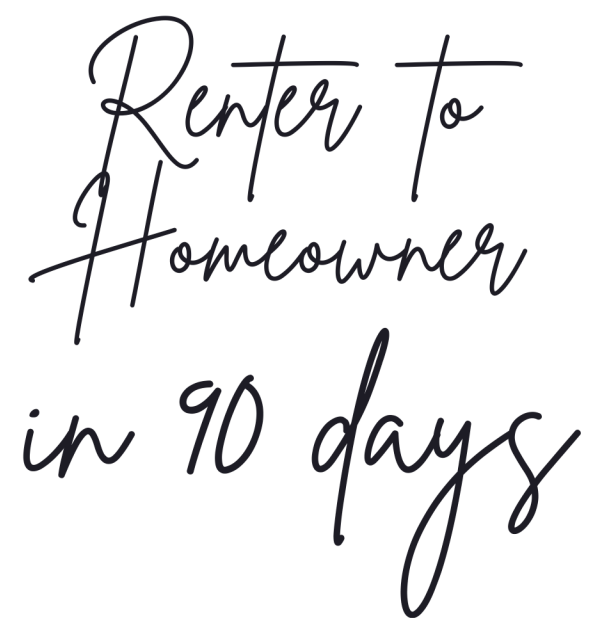 Renter to
Homeowner
in 90 days